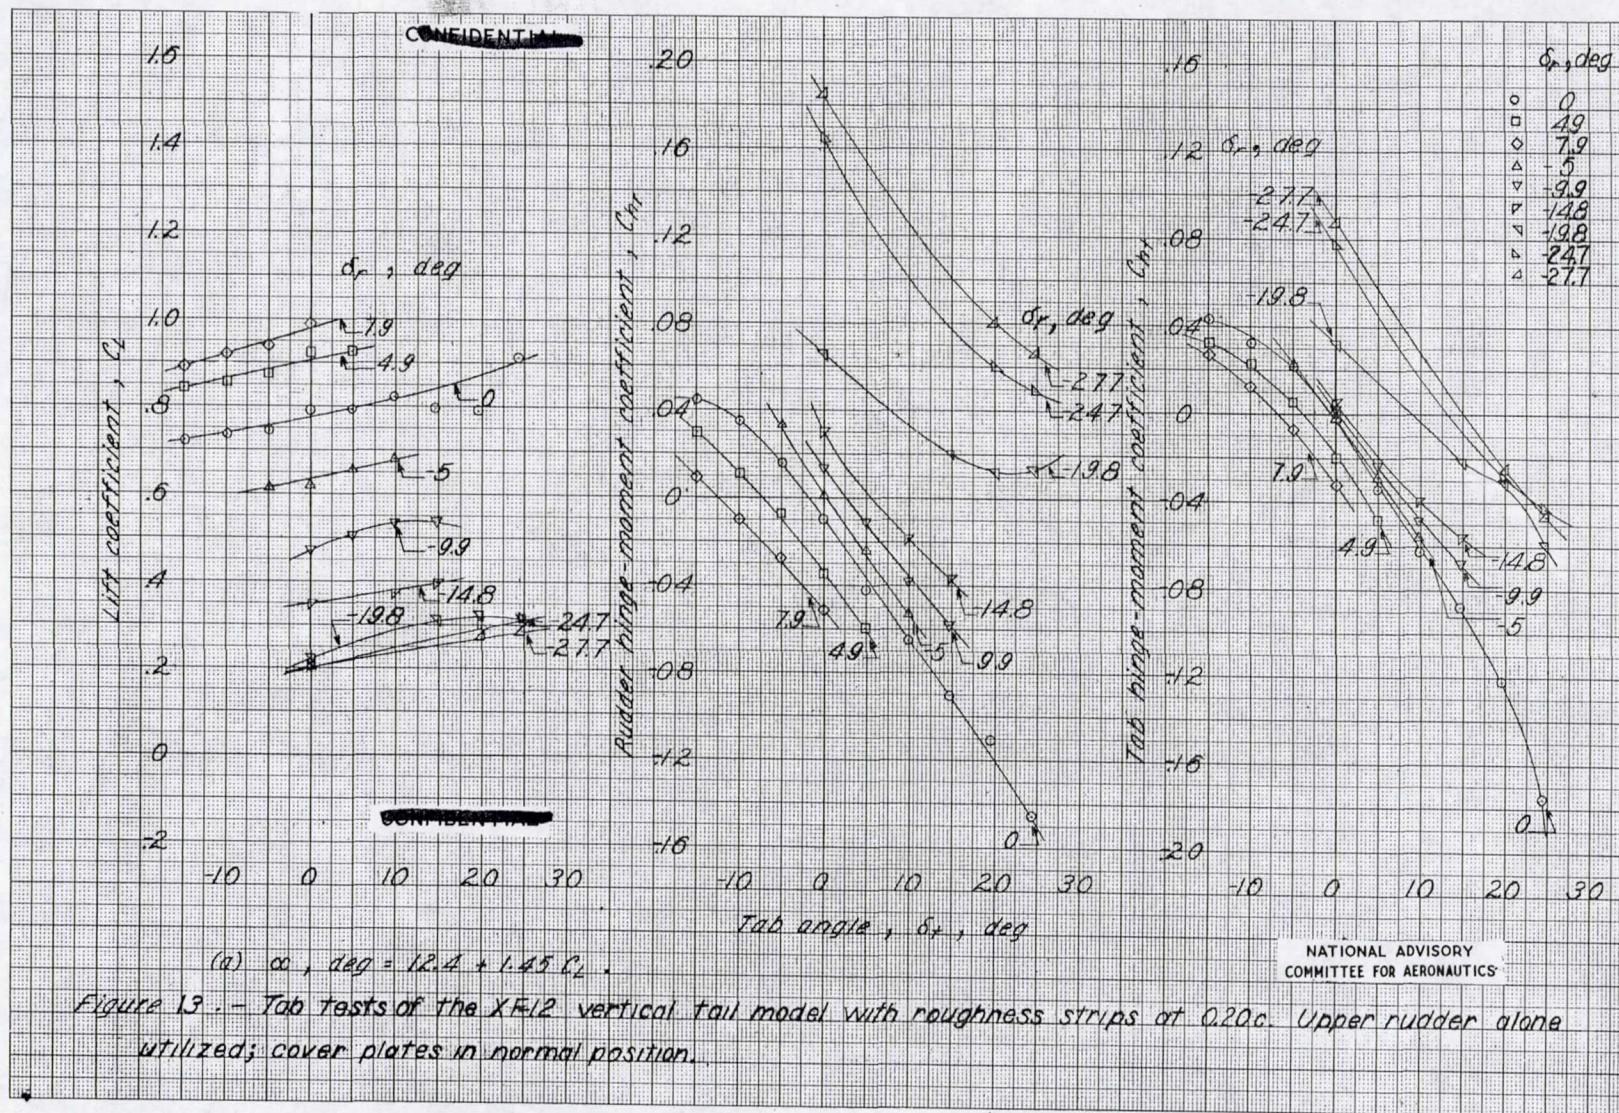 CONFIDENTIAL
1.6
1.4
1.2
1.0
.8
.6
.4
.2
0
-.2
Lift coefficient, CL
δr, deg
7.9
4.9
0
-5
-9.9
-14.8
-19.8
-24.7
-27.7
-10 0 10 20 30
.20
.16
.12
.08
.04
0
-.04
-.08
-.12
-.16
Rudder hinge-moment coefficient, Chr
δr, deg
-27.7
-24.7
-19.8
-14.8
-9.9
-5
4.9
7.9
0
-10 0 10 20 30
Tab angle, δt, deg
.16
.12
.08
.04
0
-.04
-.08
-.12
-.16
-.20
Tab hinge-moment coefficient, Cht
δr, deg
-27.7
-24.7
-19.8
7.9
4.9
-14.8
-9.9
-5
0
-10 0 10 20 30
δr, deg
0
4.9
7.9
-5
-9.9
-14.8
-19.8
-24.7
-27.7
CONFIDENTIAL
NATIONAL ADVISORY
COMMITTEE FOR AERONAUTICS
(a) ∝, deg = 12.4 + 1.45 CL.
Figure 13. - Tab tests of the XF-12 vertical tail model with roughness strips at 0.20c. Upper rudder alone
utilized; cover plates in normal position.